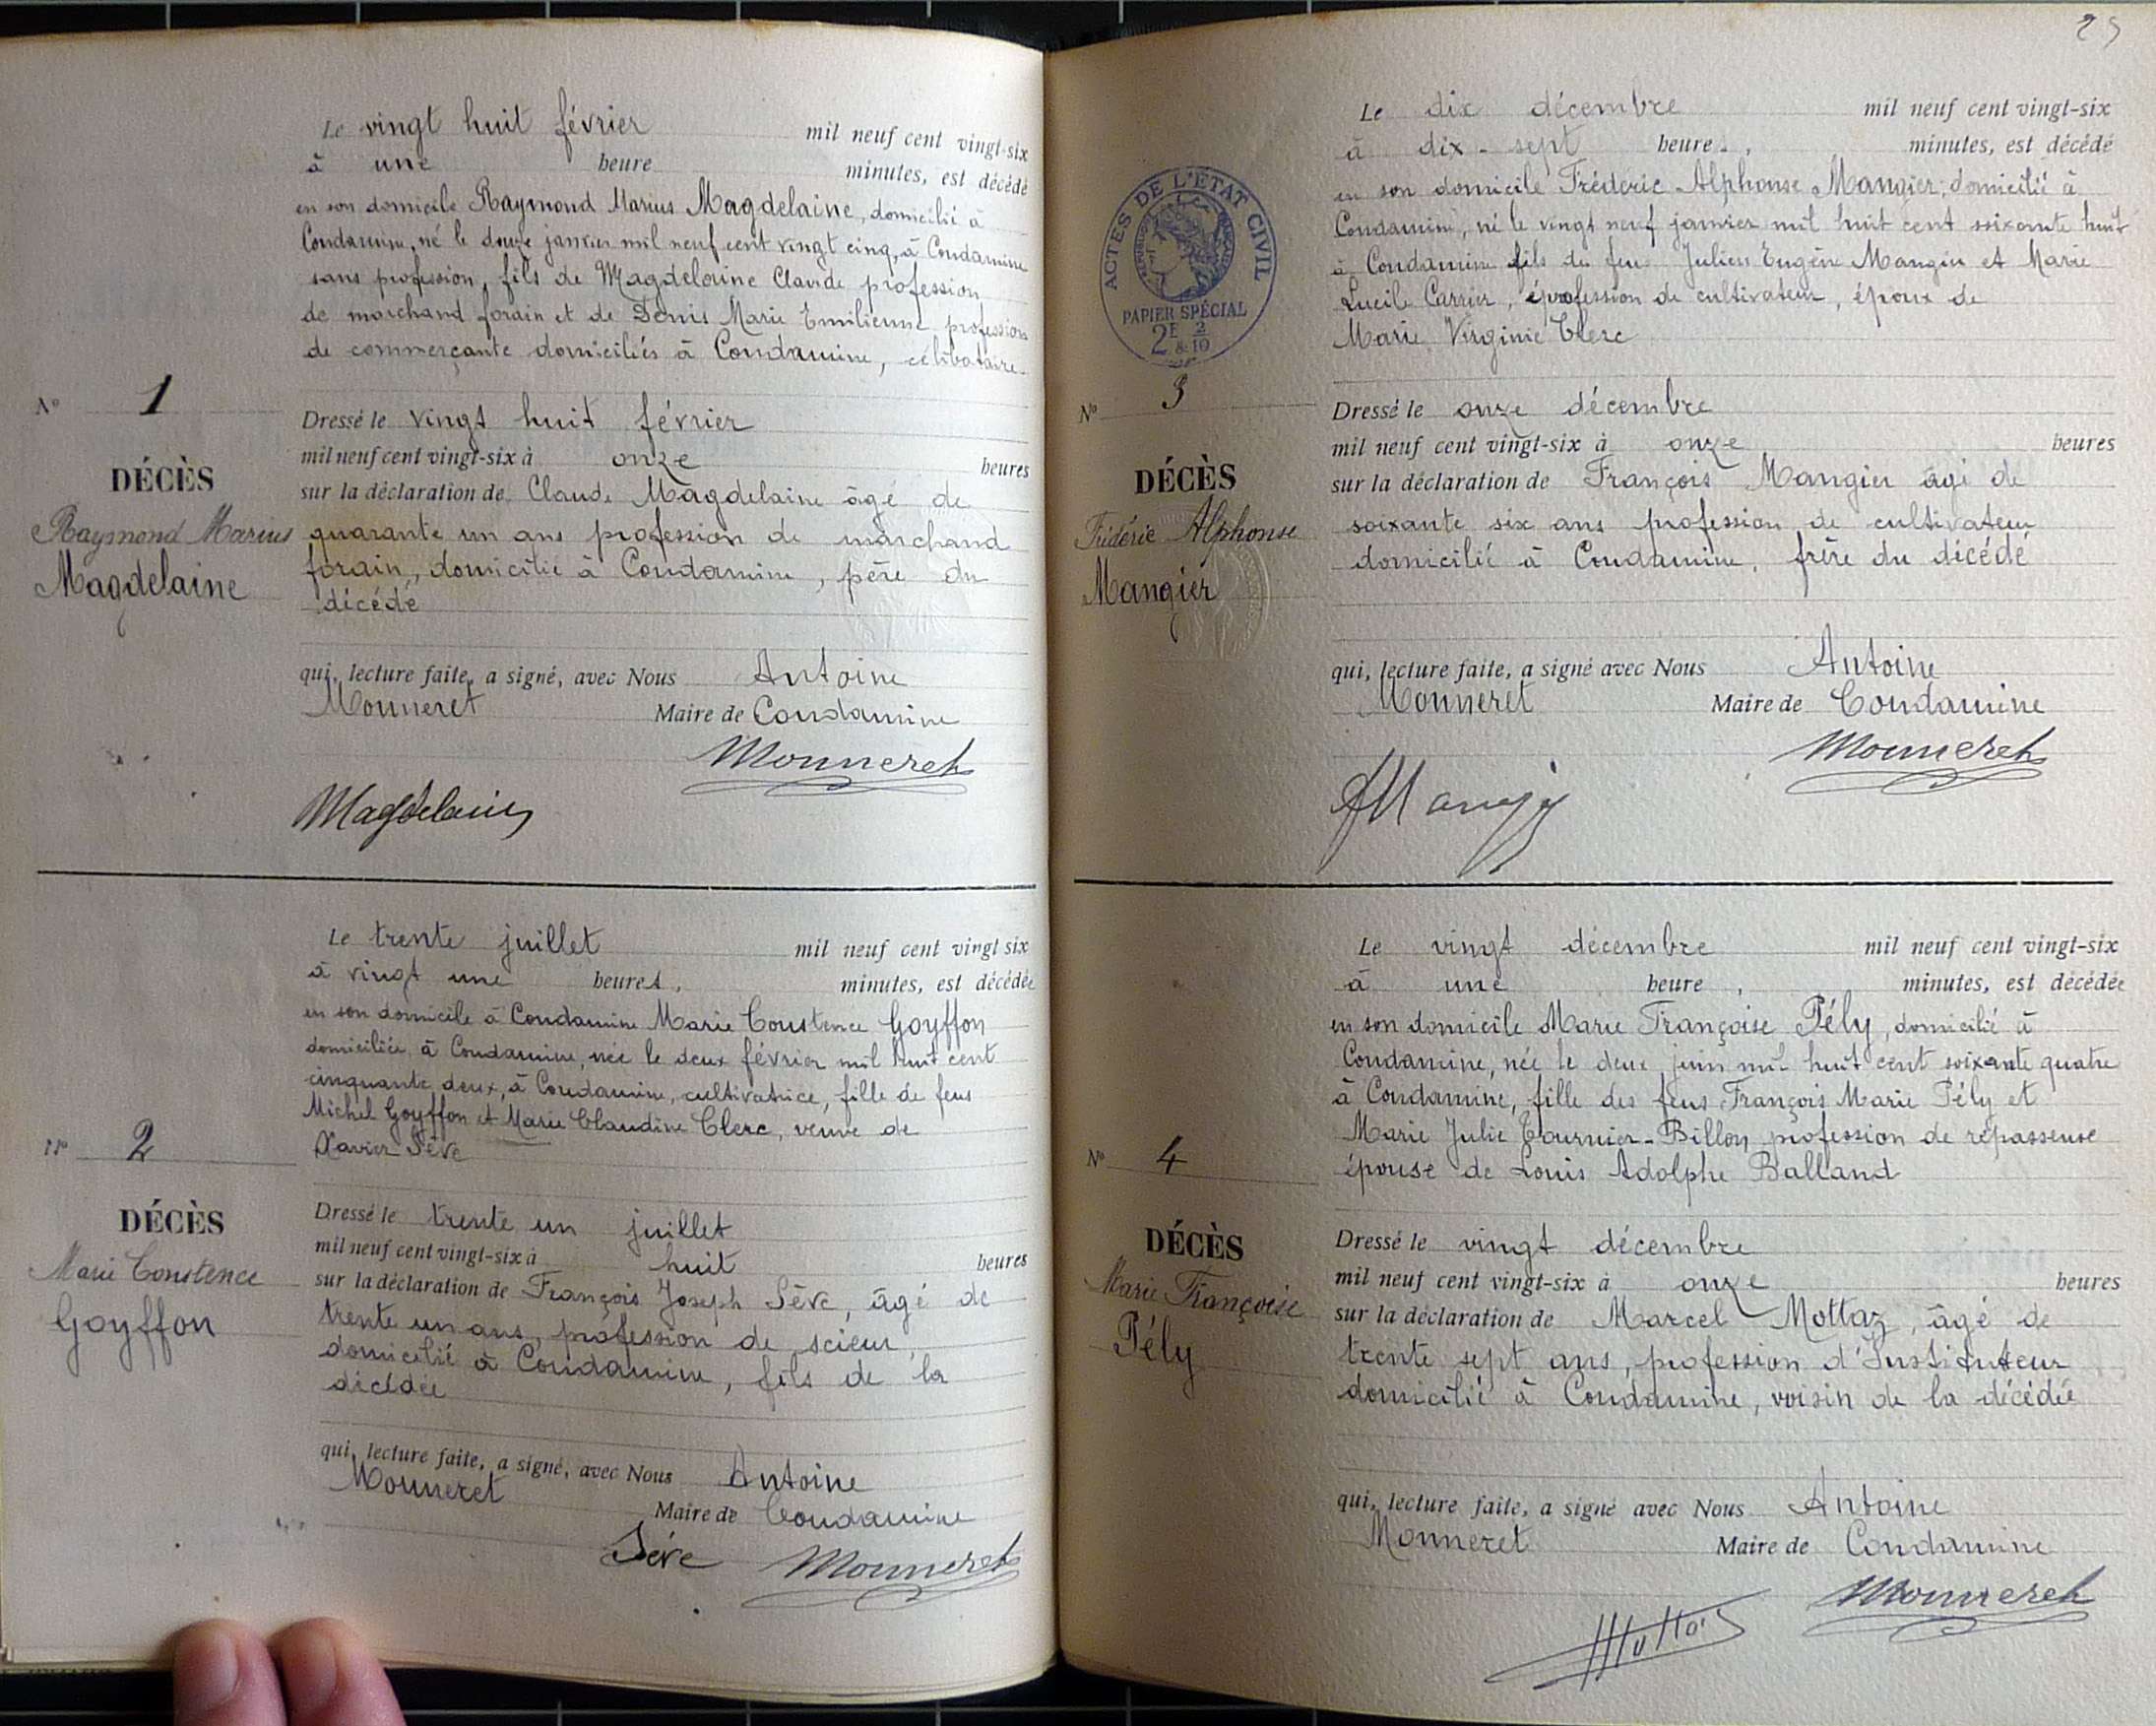 Le vingt huit février mil neuf cent vingt-six
à une heure minutes, est décédé
en son domicile Raymond Marius Magdelaine, domicilié à
Condamine, né le douze janvier mil neuf cent vingt cinq, à Condamine
sans profession, fils de Magdelaine Claude profession
de marchand forain et de Denis Marie Emilienne profession
de commerçante domiciliés à Condamine, célibataire.
N° 1
DÉCÈS
Raymond Marius
Magdelaine
Dressé le vingt huit février
mil neuf cent vingt-six à onze heures
sur la déclaration de Claude Magdelaine âgé de
quarante un ans profession de marchand
forain, domicilié à Condamine, père du
décédé
qui, lecture faite, a signé, avec Nous Antoine
Monneret Maire de Condamine
Monneret
Magdelaine
Le trente juillet mil neuf cent vingt six
à vingt une heures, minutes, est décédée
en son domicile à Condamine Marie Constence Goyffon
domiciliée à Condamine, née le deux février mil huit cent
cinquante deux, à Condamine, cultivatrice, fille de feus
Michel Goyffon et Marie Claudine Clerc, veuve de
Xavier Sève
N° 2
DÉCÈS
Marie Constence
Goyffon
Dressé le trente un juillet
mil neuf cent vingt-six à huit heures
sur la déclaration de François Joseph Sève, âgé de
trente un ans, profession de scieur,
domicilié à Condamine, fils de la
décédée
qui, lecture faite, a signé, avec Nous Antoine
Monneret Maire de Condamine
Sève Monneret
25
Le dix décembre mil neuf cent vingt-six
à dix-sept heures, minutes, est décédé
en son domicile Fréderic Alphonse Mangier, domicilié à
Condamine, né le vingt neuf janvier mil huit cent soixante huit
à Condamine fils de feu Julien Eugène Mangin et Marie
Lucile Carrier, profession de cultivateur, époux de
Marie Virginie Clerc
ACTES DE L'ÉTAT CIVIL
RÉPUBLIQUE FRANÇAISE
PAPIER SPÉCIAL
2E & 2/10
N° 3
DÉCÈS
Fréderic Alphonse
Mangier
Dressé le onze décembre
mil neuf cent vingt-six à onze heures
sur la déclaration de François Mangier âgé de
soixante six ans profession de cultivateur
domicilié à Condamine, frère du décédé
qui, lecture faite, a signé avec Nous Antoine
Monneret Maire de Condamine
Monneret
Le vingt décembre mil neuf cent vingt-six
à une heure, minutes, est décédée
en son domicile Marie Françoise Pély, domicilié à
Condamine, née le deux juin mil huit cent soixante quatre
à Condamine, fille des feus François Marie Pély et
Marie Julie Tournier-Billon profession de repasseuse
épouse de Louis Adolphe Balland
N° 4
DÉCÈS
Marie Françoise
Pély
Dressé le vingt décembre
mil neuf cent vingt-six à onze heures
sur la déclaration de Marcel Mottaz, âgé de
trente sept ans, profession d'Instituteur
domicilié à Condamine, voisin de la décédée
qui, lecture faite, a signé avec Nous Antoine
Monneret Maire de Condamine
Monneret